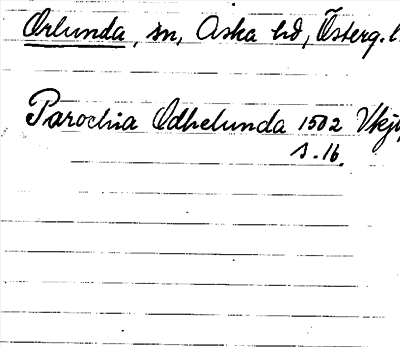 Orlunda, sn, Aska hd, Österg. l.
Parochia Odhelunda 1502 Vkjb
s. 16.